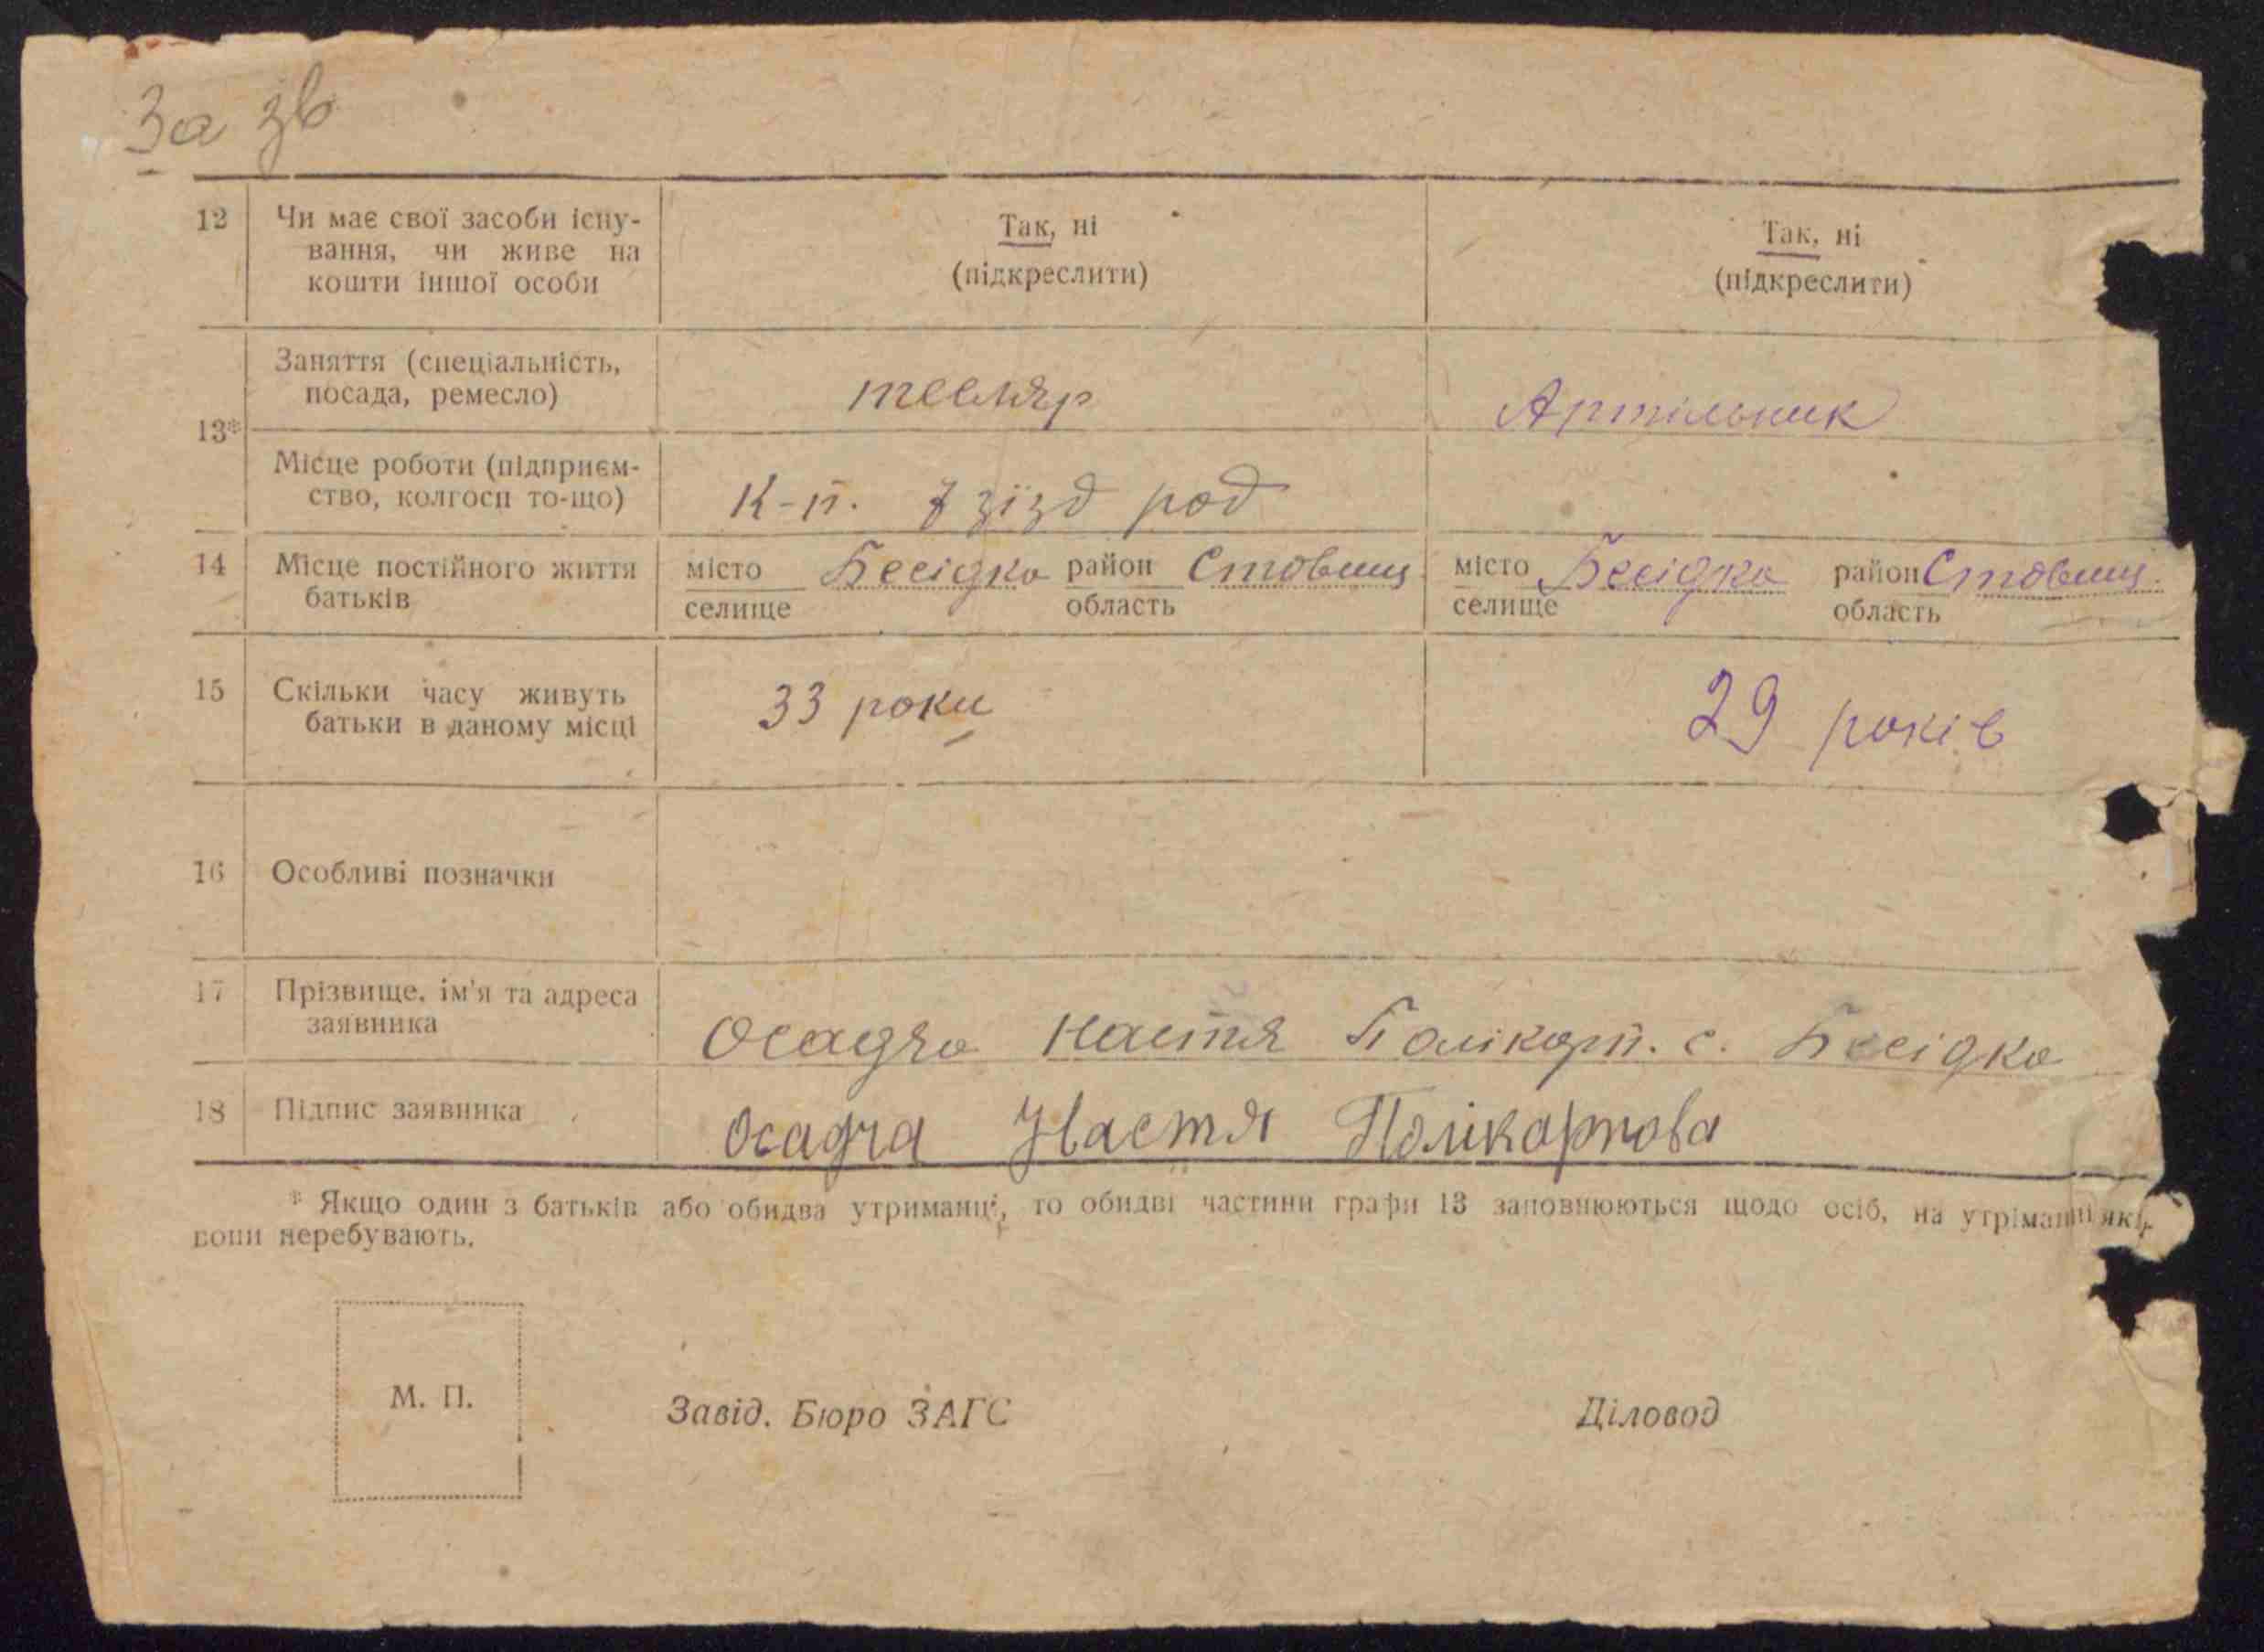 За зв
12 Чи має свої засоби існу-
вання, чи живе на
кошти іншої особи
Так, ні
(підкреслити)
Так, ні
(підкреслити)
13*
Заняття (спеціальність,
посада, ремесло)
тесляр
Артільник
Місце роботи (підприєм-
ство, колгосп то-що)
К-п. 7 зїзд рад
14 Місце постійного життя
батьків
місто Бесідка район Ставищ
селище область
місто Бесідка район Ставищ.
селище область
15 Скільки часу живуть
батьки в даному місці
33 роки
29 років
16 Особливі позначки
17 Прізвище, ім'я та адреса
заявника
Осадча Настя Полікарп. с. Бесідка
18 Підпис заявника
Осадча Настя Полікарпова
* Якщо один з батьків або обидва утриманці, то обидві частини графи 13 заповнюються щодо осіб, на утріманні яких
вони перебувають.
М. П.
Завід. Бюро ЗАГС
Діловод